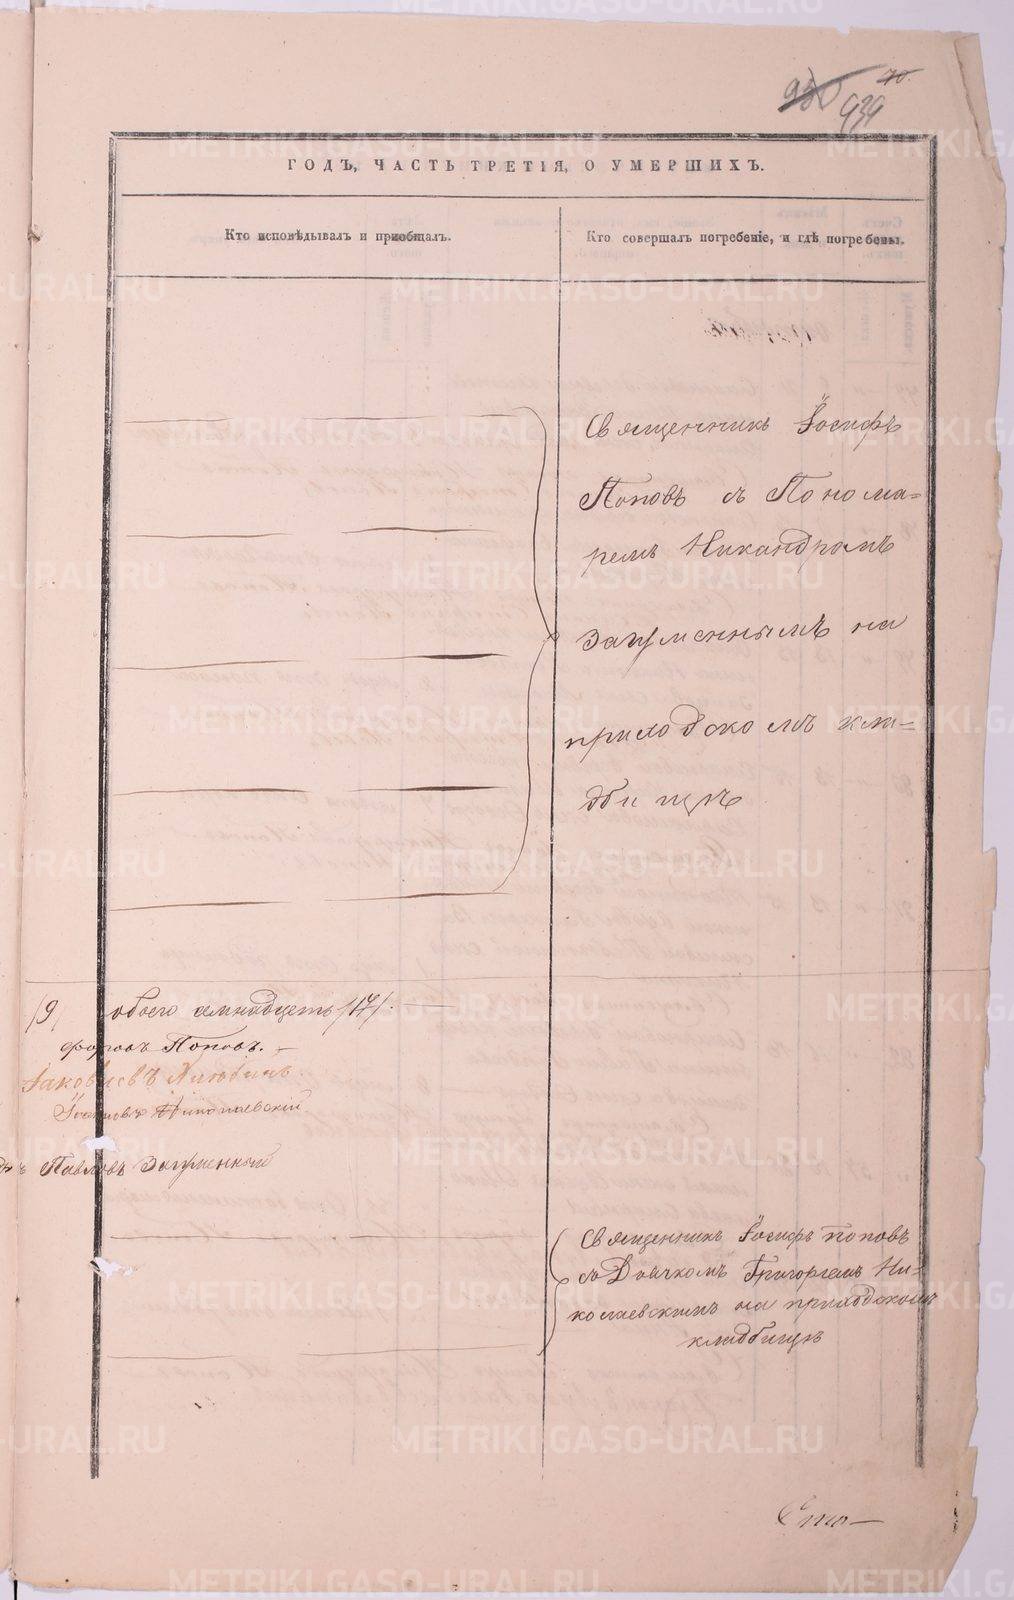 70.
930
939
ГОДЪ, ЧАСТЬ ТРЕТІЯ, О УМЕРШИХЪ.
Кто исповѣдывалъ и приобщалъ.
Кто совершалъ погребеніе, и гдѣ погребены.
Священникъ Іосифъ
Поповъ съ Понома=
ремъ Никандромъ
Загуменнымъ на
приходскомъ кла=
дбищѣ
/9/ обоего семнадцеть /17/.
форовъ Поповъ.
Іаковлевъ Хлюбинъ
Іоанновъ Николаевскій
Павловъ Загуменный
Священникъ Іосифъ Поповъ
съ Дьячкомъ Григоріемъ Ни=
колаевскимъ на приходскомъ
кладбищѣ
METRIKI.GASO-URAL.RU